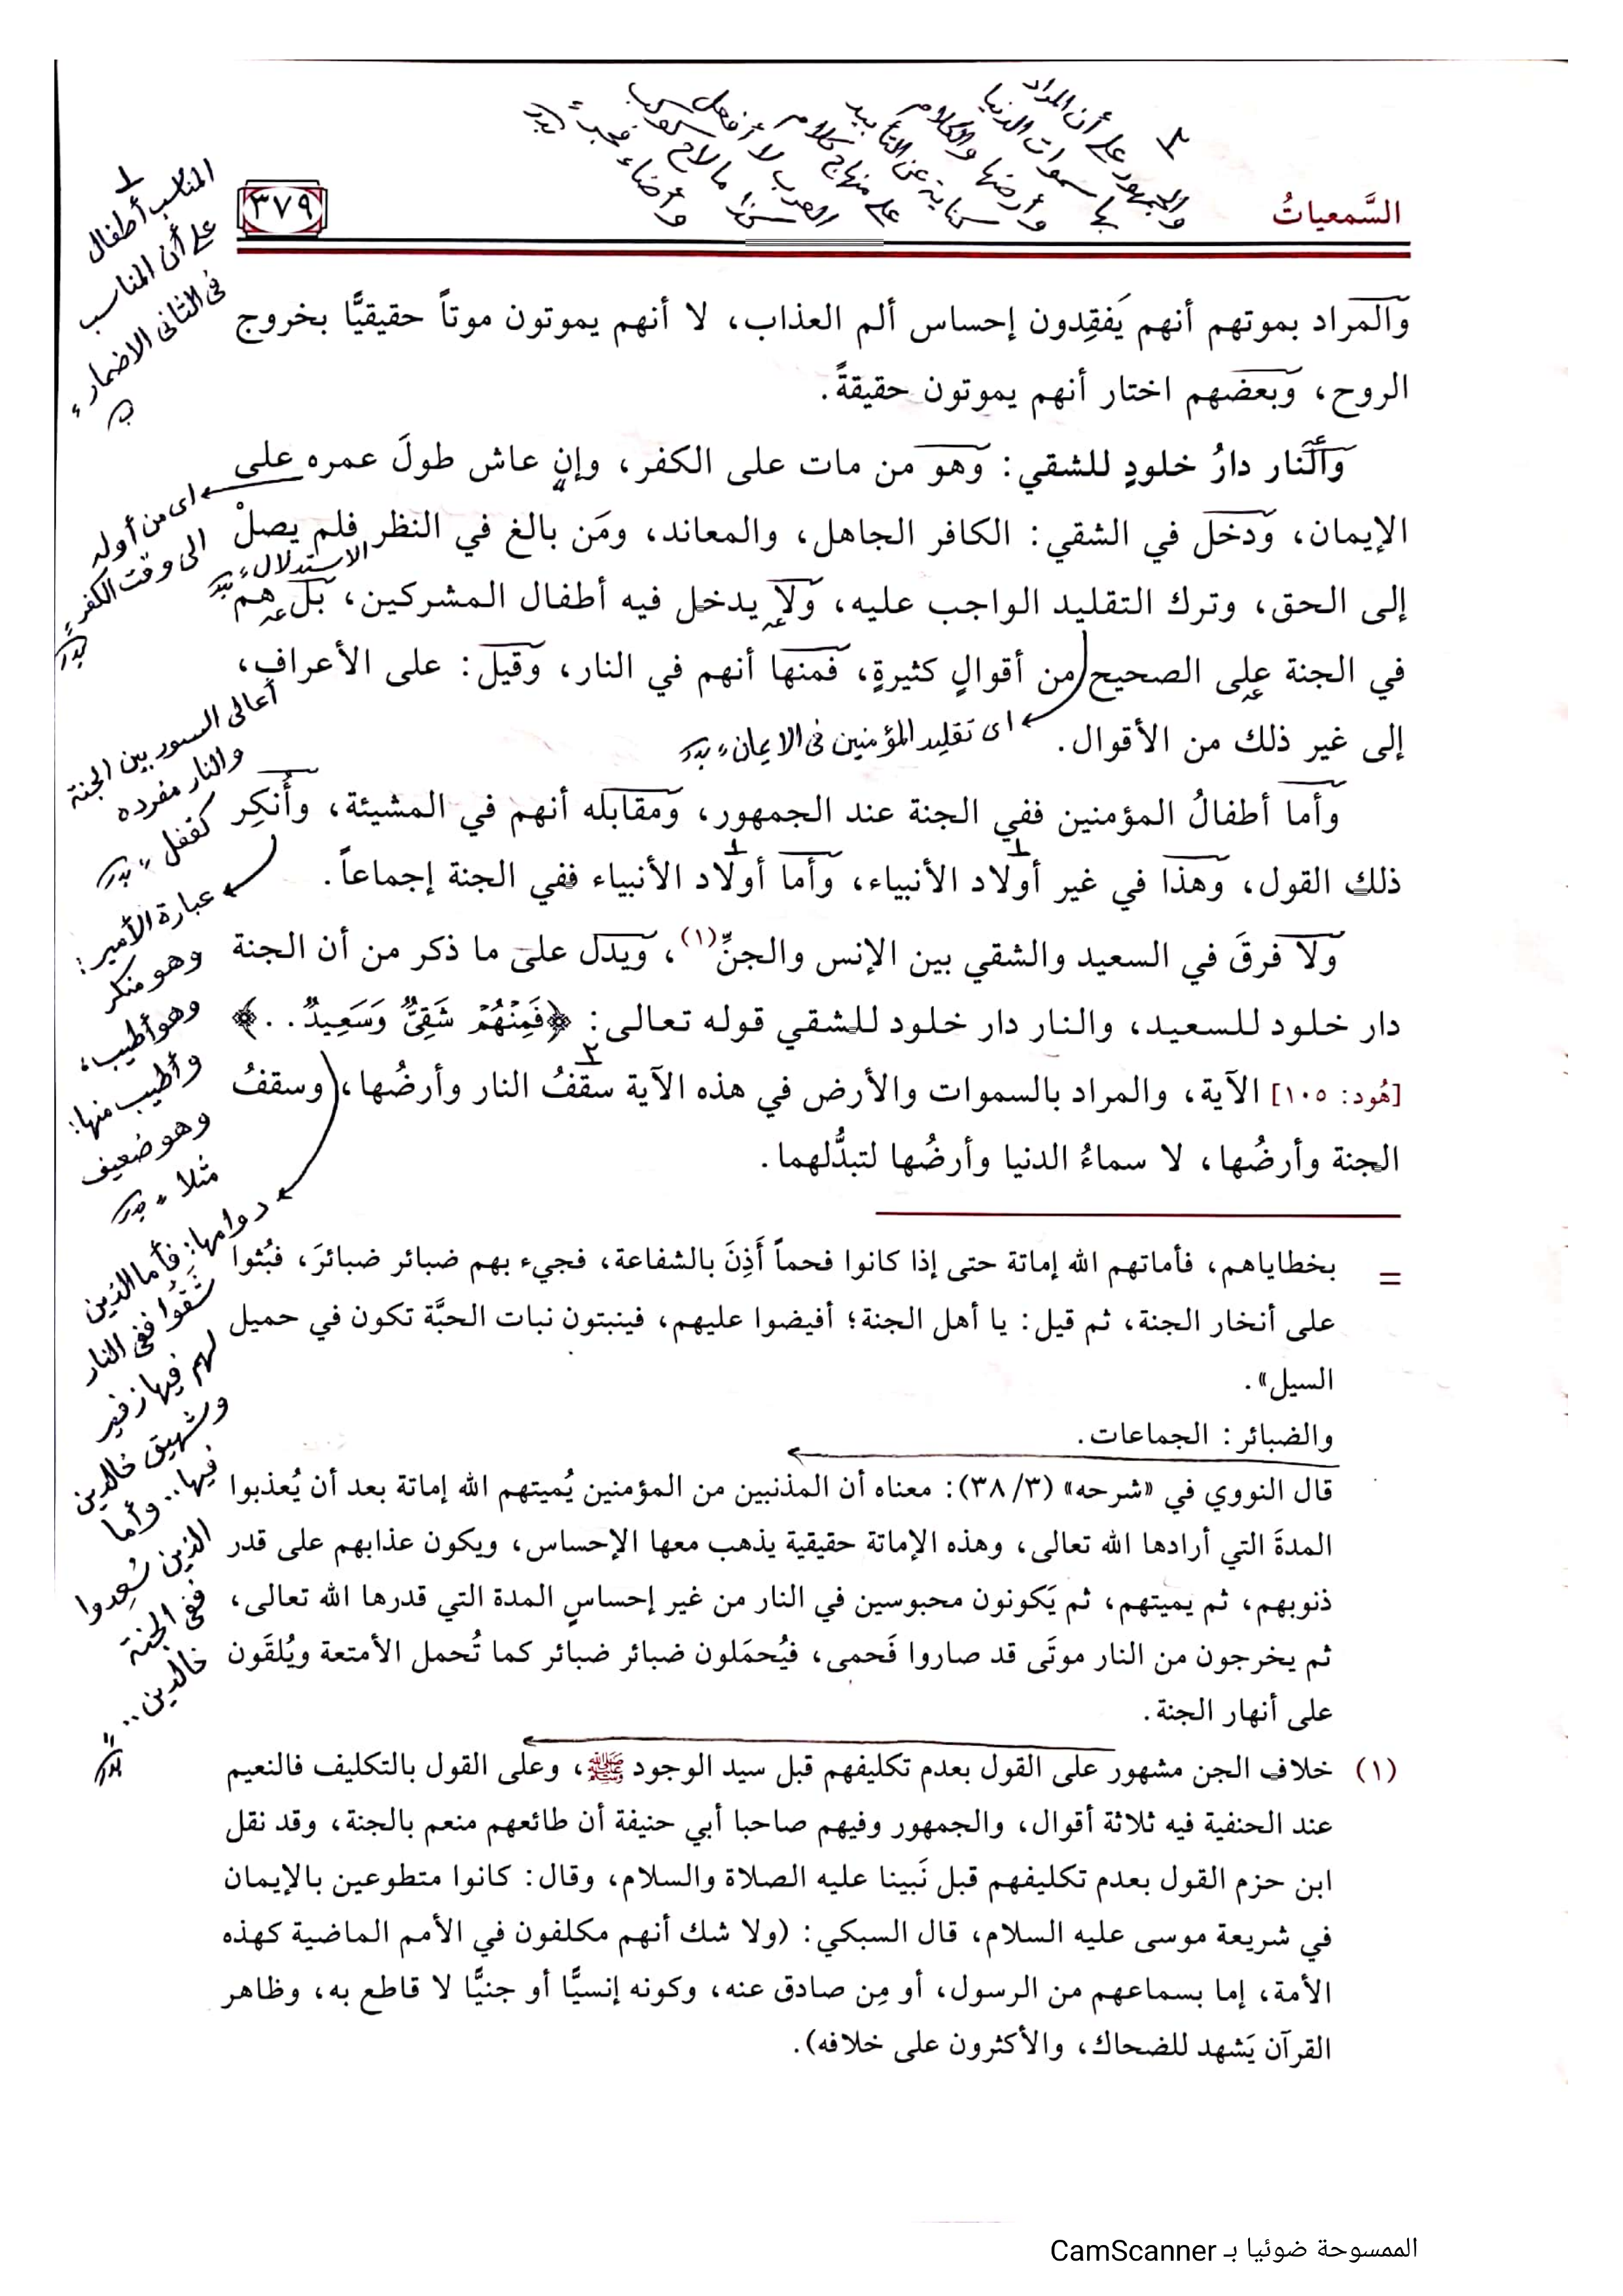 السَّمعياتُ
٣٧٩
٢
والجمهور على أن المراد
بها سموات الدنيا
وأرضها والكلام
كناية عن التأبيد
على منهاج كلام
العرب لا أفعل
كذا ما لاح كوكب
وأضاء فجر ۽
بدر
١
المناسب أطفال
على أن المناسب
فى الثانى الاضمار ۽
والمراد بموتهم أنهم يَفقِدون إحساس ألم العذاب، لا أنهم يموتون موتاً حقيقيًّا بخروج
الروح، وبعضهم اختار أنهم يموتون حقيقةً.
والنَّار دارُ خلودٍ للشقي: وهو من مات على الكفر، وإن عاش طولَ عمره على
اى من أوله
الى وقت الكفر ۽
بدر
الإيمان، ودخل في الشقي: الكافر الجاهل، والمعاند، ومَن بالغ في النظر فلم يصلْ
الاستدلال ۽ بدر
إلى الحق، وترك التقليد الواجب عليه، ولا يدخل فيه أطفال المشركين، بل هم
في الجنة على الصحيح من أقوالٍ كثيرةٍ، فمنها أنهم في النار، وقيل: على الأعراف،
أعالى السور بين الجنة
والنار مفرده
كقفل ۽ بدر
إلى غير ذلك من الأقوال.
اى تقليد المؤمنين فى الايمان ۽ بدر
وأما أطفالُ المؤمنين ففي الجنة عند الجمهور، ومقابله أنهم في المشيئة، وأُنكِر
عبارة الأمير:
وهو منكر
وهو أطيب،
وأطيب منها:
وهو ضعيف
مثلا ۽ بدر
ذلك القول، وهذا في غير أولاد الأنبياء، وأما أولاد الأنبياء ففي الجنة إجماعاً.
ولا فرقَ في السعيد والشقي بين الإنس والجنِّ(١)، ويدل على ما ذكر من أن الجنة
دار خلود للسعيد، والنار دار خلود للشقي قوله تعالى: ﴿فَمِنْهُمْ شَقِىٌّ وَسَعِيدٌ..﴾
[هُود: ١٠٥] الآية، والمراد بالسموات والأرض في هذه الآية سقفُ النار وأرضُها، وسقفُ
الجنة وأرضُها، لا سماءُ الدنيا وأرضُها لتبدُّلهما.
دوامها: فأما الذين
شَقُوا ففى النار
لهم فيها زفير
وشهيق خالدين
فيها.. وأما
الذين سُعِدوا
ففى الجنة
خالدين.. ۽
بدر
= بخطاياهم، فأماتهم الله إماتة حتى إذا كانوا فحماً أَذِنَ بالشفاعة، فجيء بهم ضبائر ضبائرَ، فبُثوا
على أنخار الجنة، ثم قيل: يا أهل الجنة؛ أفيضوا عليهم، فينبتون نبات الحبَّة تكون في حميل
السيل».
والضبائر: الجماعات.
قال النووي في «شرحه» (٣/ ٣٨): معناه أن المذنبين من المؤمنين يُميتهم الله إماتة بعد أن يُعذبوا
المدةَ التي أرادها الله تعالى، وهذه الإماتة حقيقية يذهب معها الإحساس، ويكون عذابهم على قدر
ذنوبهم، ثم يميتهم، ثم يَكونون محبوسين في النار من غير إحساسٍ المدة التي قدرها الله تعالى،
ثم يخرجون من النار موتَى قد صاروا فَحمى، فيُحمَلون ضبائر ضبائر كما تُحمل الأمتعة ويُلقَون
على أنهار الجنة.
(١) خلاف الجن مشهور على القول بعدم تكليفهم قبل سيد الوجود ﷺ، وعلى القول بالتكليف فالنعيم
عند الحنفية فيه ثلاثة أقوال، والجمهور وفيهم صاحبا أبي حنيفة أن طائعهم منعم بالجنة، وقد نقل
ابن حزم القول بعدم تكليفهم قبل نَبينا عليه الصلاة والسلام، وقال: كانوا متطوعين بالإيمان
في شريعة موسى عليه السلام، قال السبكي: (ولا شك أنهم مكلفون في الأمم الماضية كهذه
الأمة، إما بسماعهم من الرسول، أو مِن صادق عنه، وكونه إنسيًّا أو جنيًّا لا قاطع به، وظاهر
القرآن يَشهد للضحاك، والأكثرون على خلافه).
الممسوحة ضوئيا بـ CamScanner